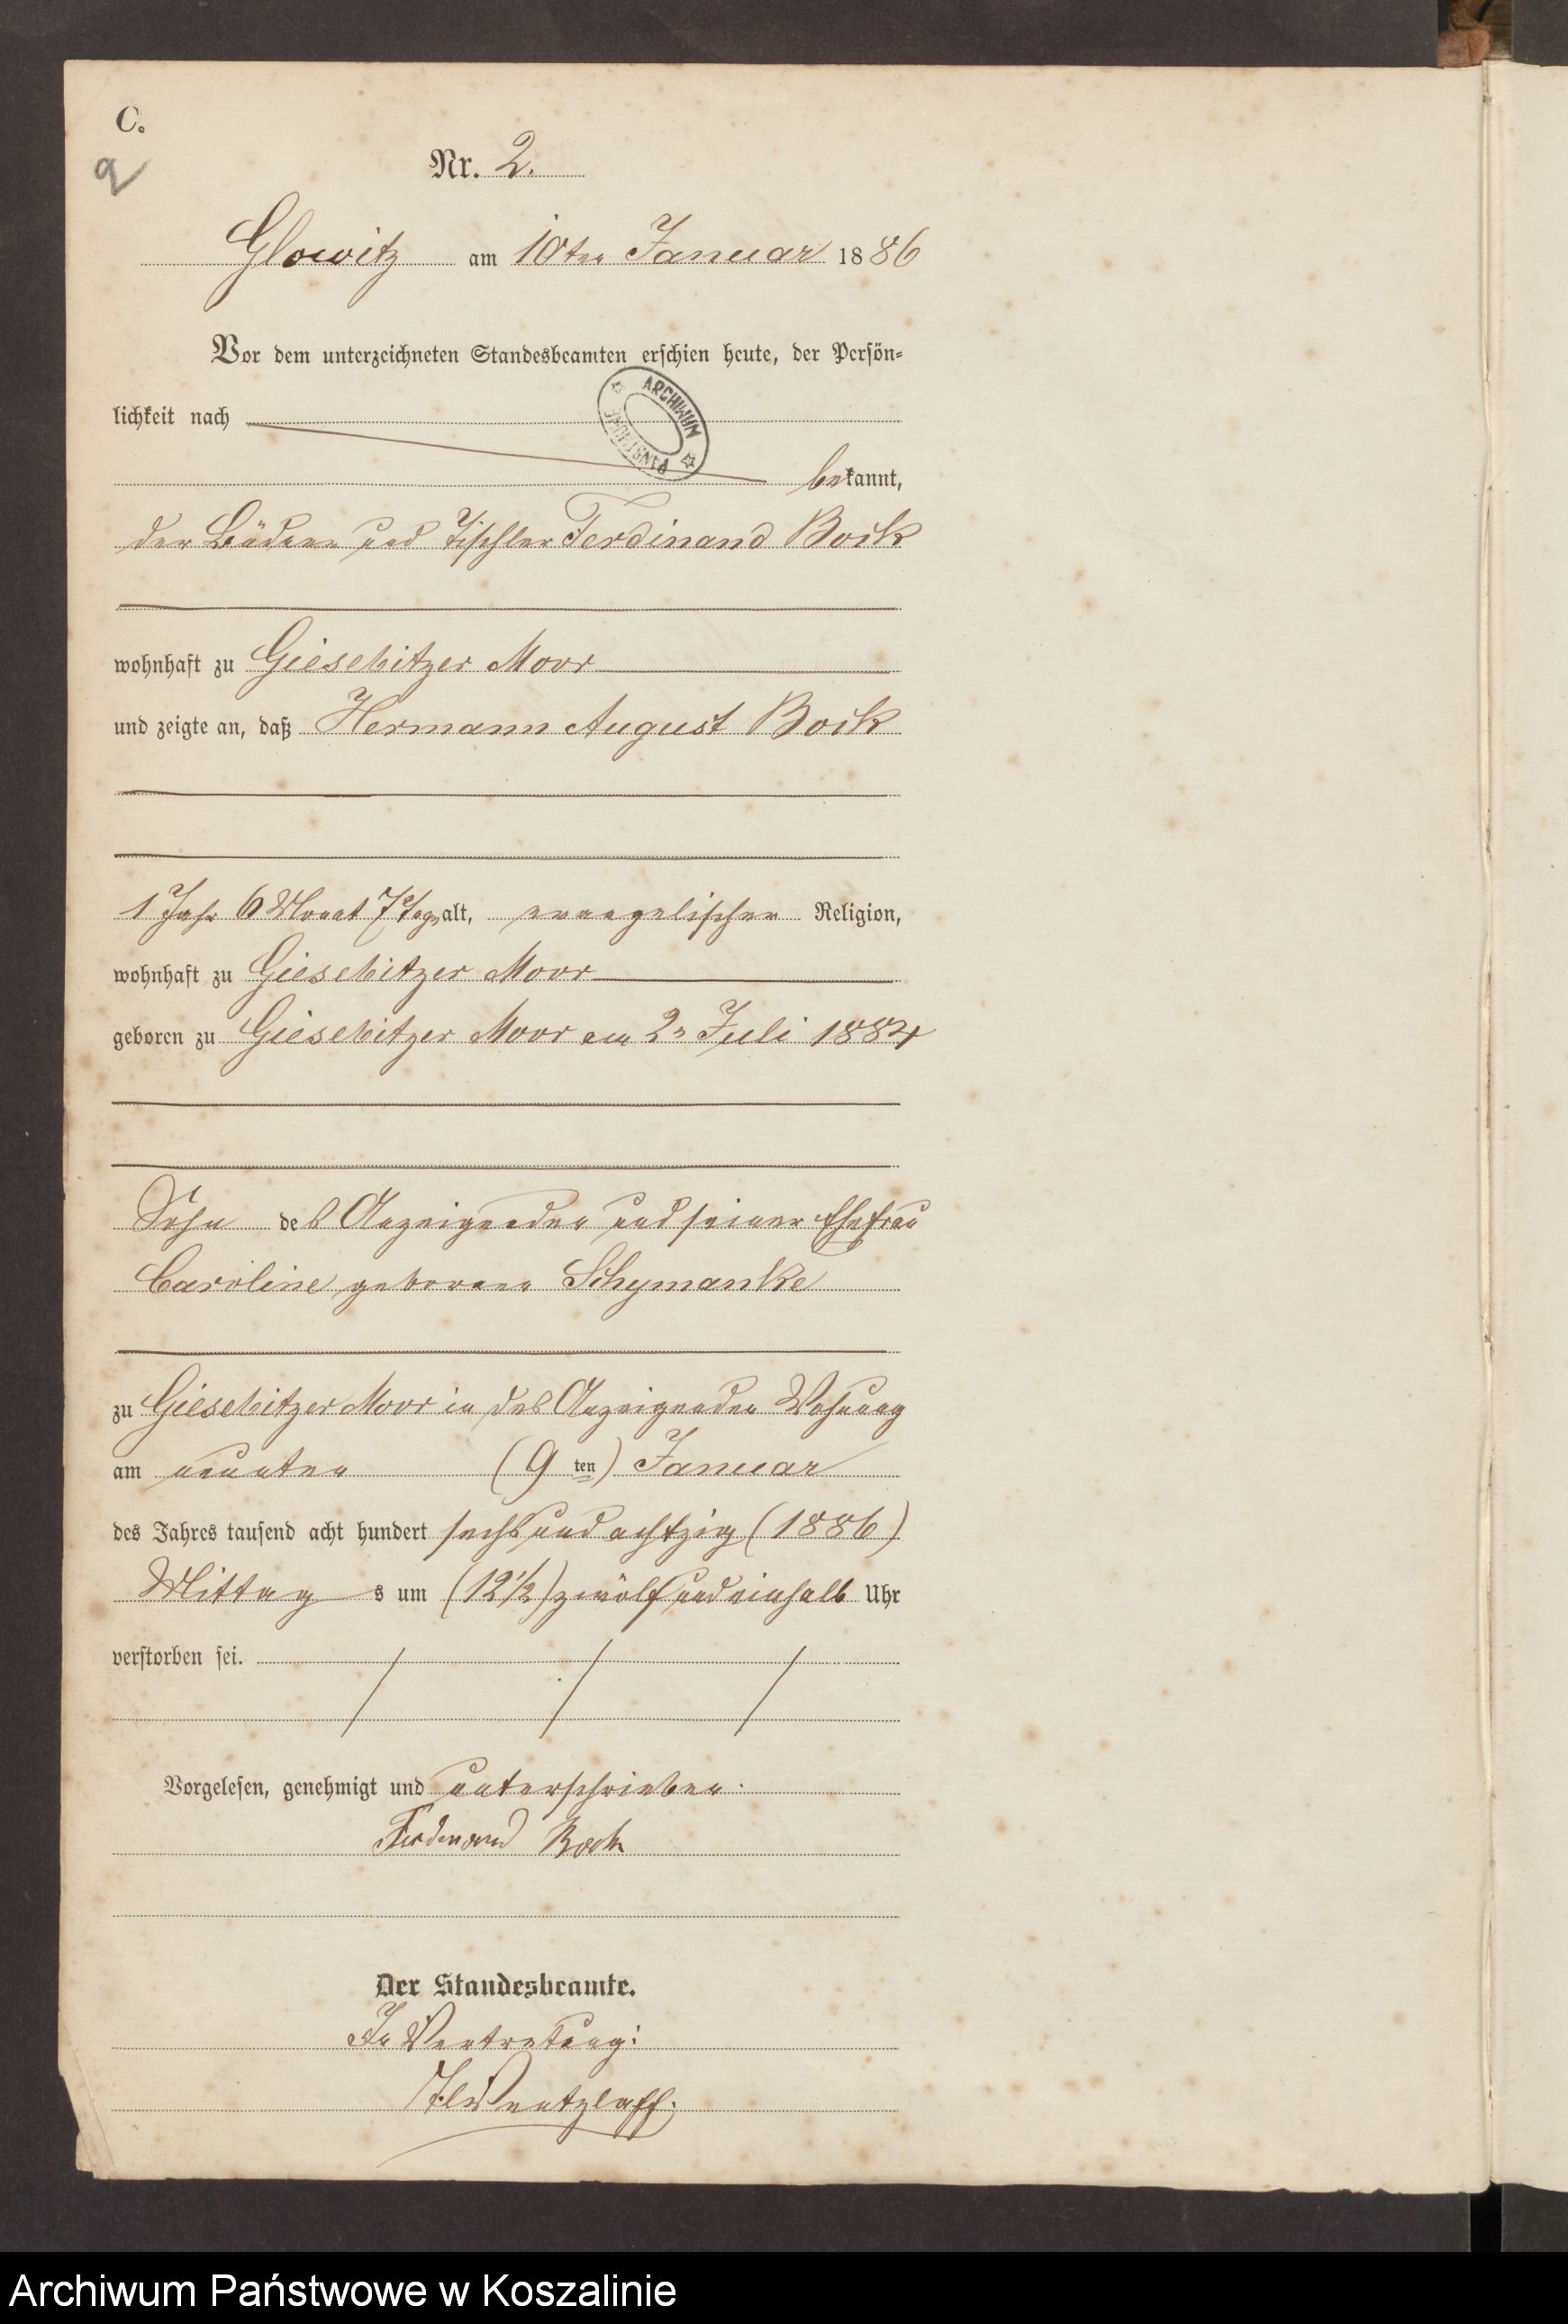 C.
2
Nr. 2.
Glowitz am 10ten Januar 1886
Vor dem unterzeichneten Standesbeamten erschien heute, der Persön-
lichkeit nach
ARCHIWUM PAŃSTWOWE
bekannt,
der Büdner und Tischler Ferdinand Bock
wohnhaft zu Giesebitzer Moor
und zeigte an, daß Hermann August Bock
1 Jahr 6 Monat 7 Tage alt, evangelischer Religion,
wohnhaft zu Giesebitzer Moor
geboren zu Giesebitzer Moor am 2n Juli 1884
Sohn des Anzeigenden und seiner Ehefrau
Caroline geborenen Schymanke
zu Giesebitzer Moor in des Anzeigenden Wohnung
am neunten (9 ten) Januar
des Jahres tausend acht hundert sechs und achtzig (1886)
Mittags um (12½) zwölf und einhalb Uhr
verstorben sei.
Vorgelesen, genehmigt und unterschrieben.
Ferdinand Bock
Der Standesbeamte.
In Vertretung:
Wentzlaff.
Archiwum Państwowe w Koszalinie